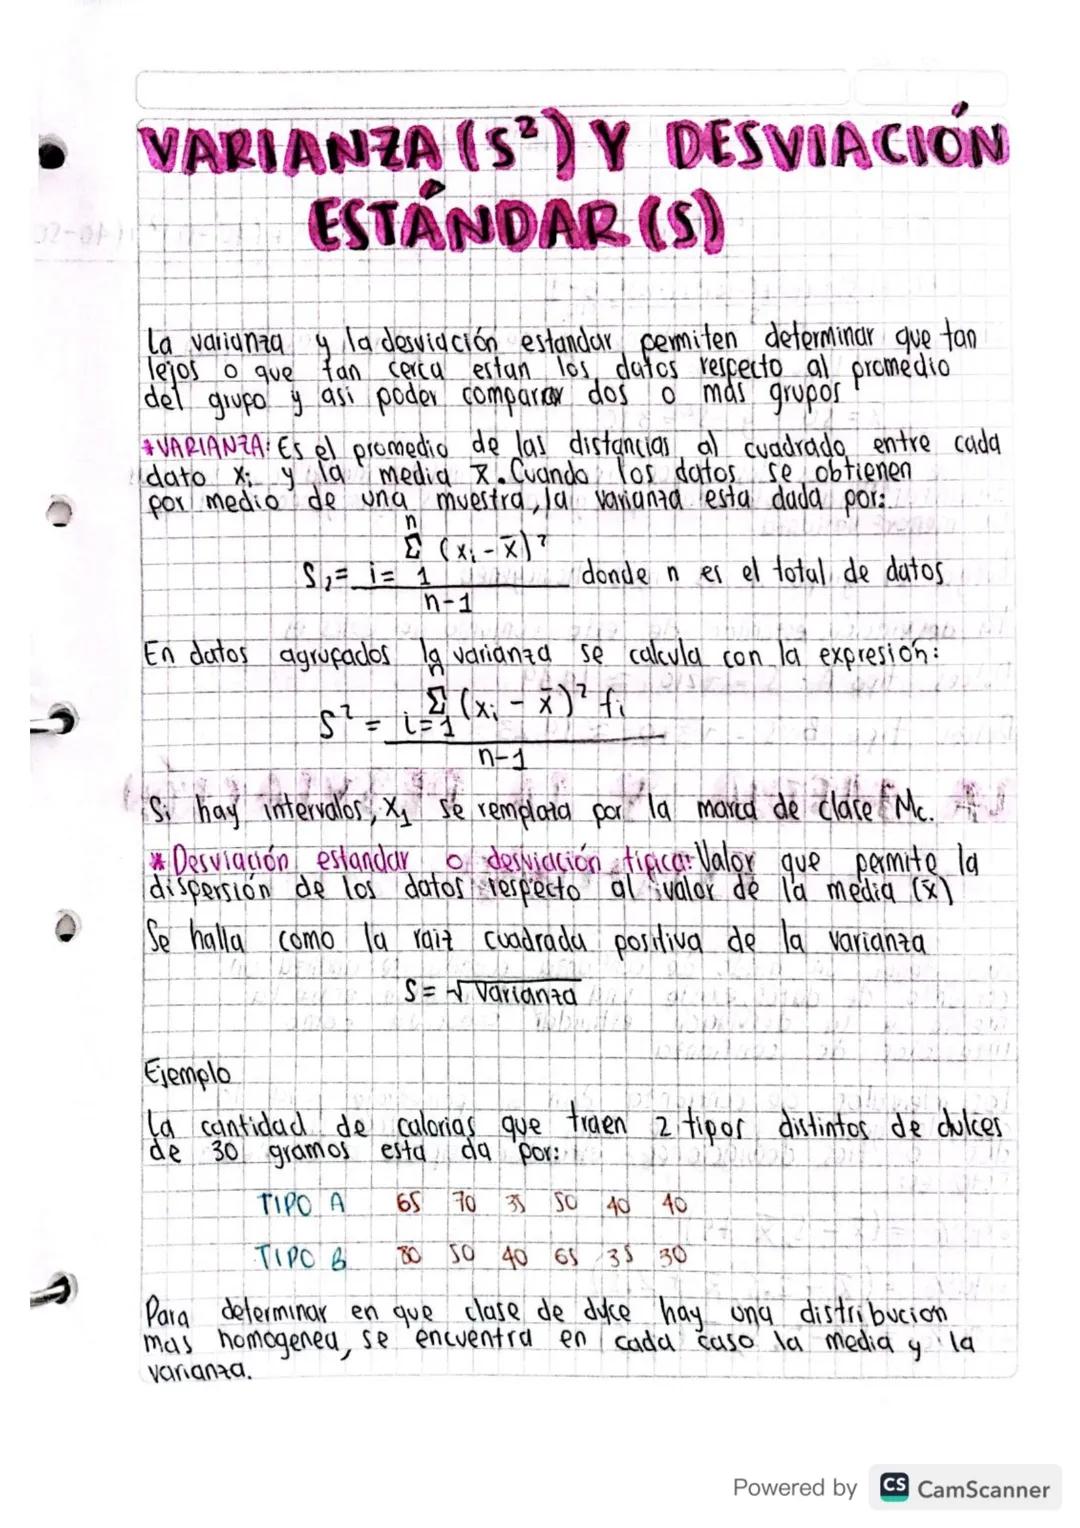 VARIANZA (S²) Y DESVIACIÓN
ESTÁNDAR (S)
La varianza y la desviación estandar permiten determinar que tan
lejos o que tan cerca estan los datos respecto al promedio
del grupo y asi poder comparar dos o más grupos
*VARIANZA: Es el promedio de las distancias al cuadrado entre cada
dato Xi y la media x̄. Cuando los datos se obtienen
por medio de una muestra, la varianza esta dada por:
n
Σ (xi - x̄)²
S²= i= 1 donde n es el total de datos
n-1
En datos agrupados la varianza se calcula con la expresión:
n
Σ (xi - x̄)² fi
S² = i=1
n-1
Si hay intervalos, X1 se remplaza por la marca de clase Mc.
* Desviación estandar o desviación tipica: Valor que permite la
dispersión de los datos respecto al valor de la media (x̄)
Se halla como la raiz cuadrada positiva de la varianza
S = √Varianza
Ejemplo
La cantidad de calorias que traen 2 tipos distintos de dulces
de 30 gramos esta da por:
TIPO A 65 70 35 50 40 40
TIPO B 80 50 40 65 35 30
Para determinar en que clase de dulce hay una distribucion
mas homogenea, se encuentra en cada caso la media y la
varianza.
Powered by CS CamScanner